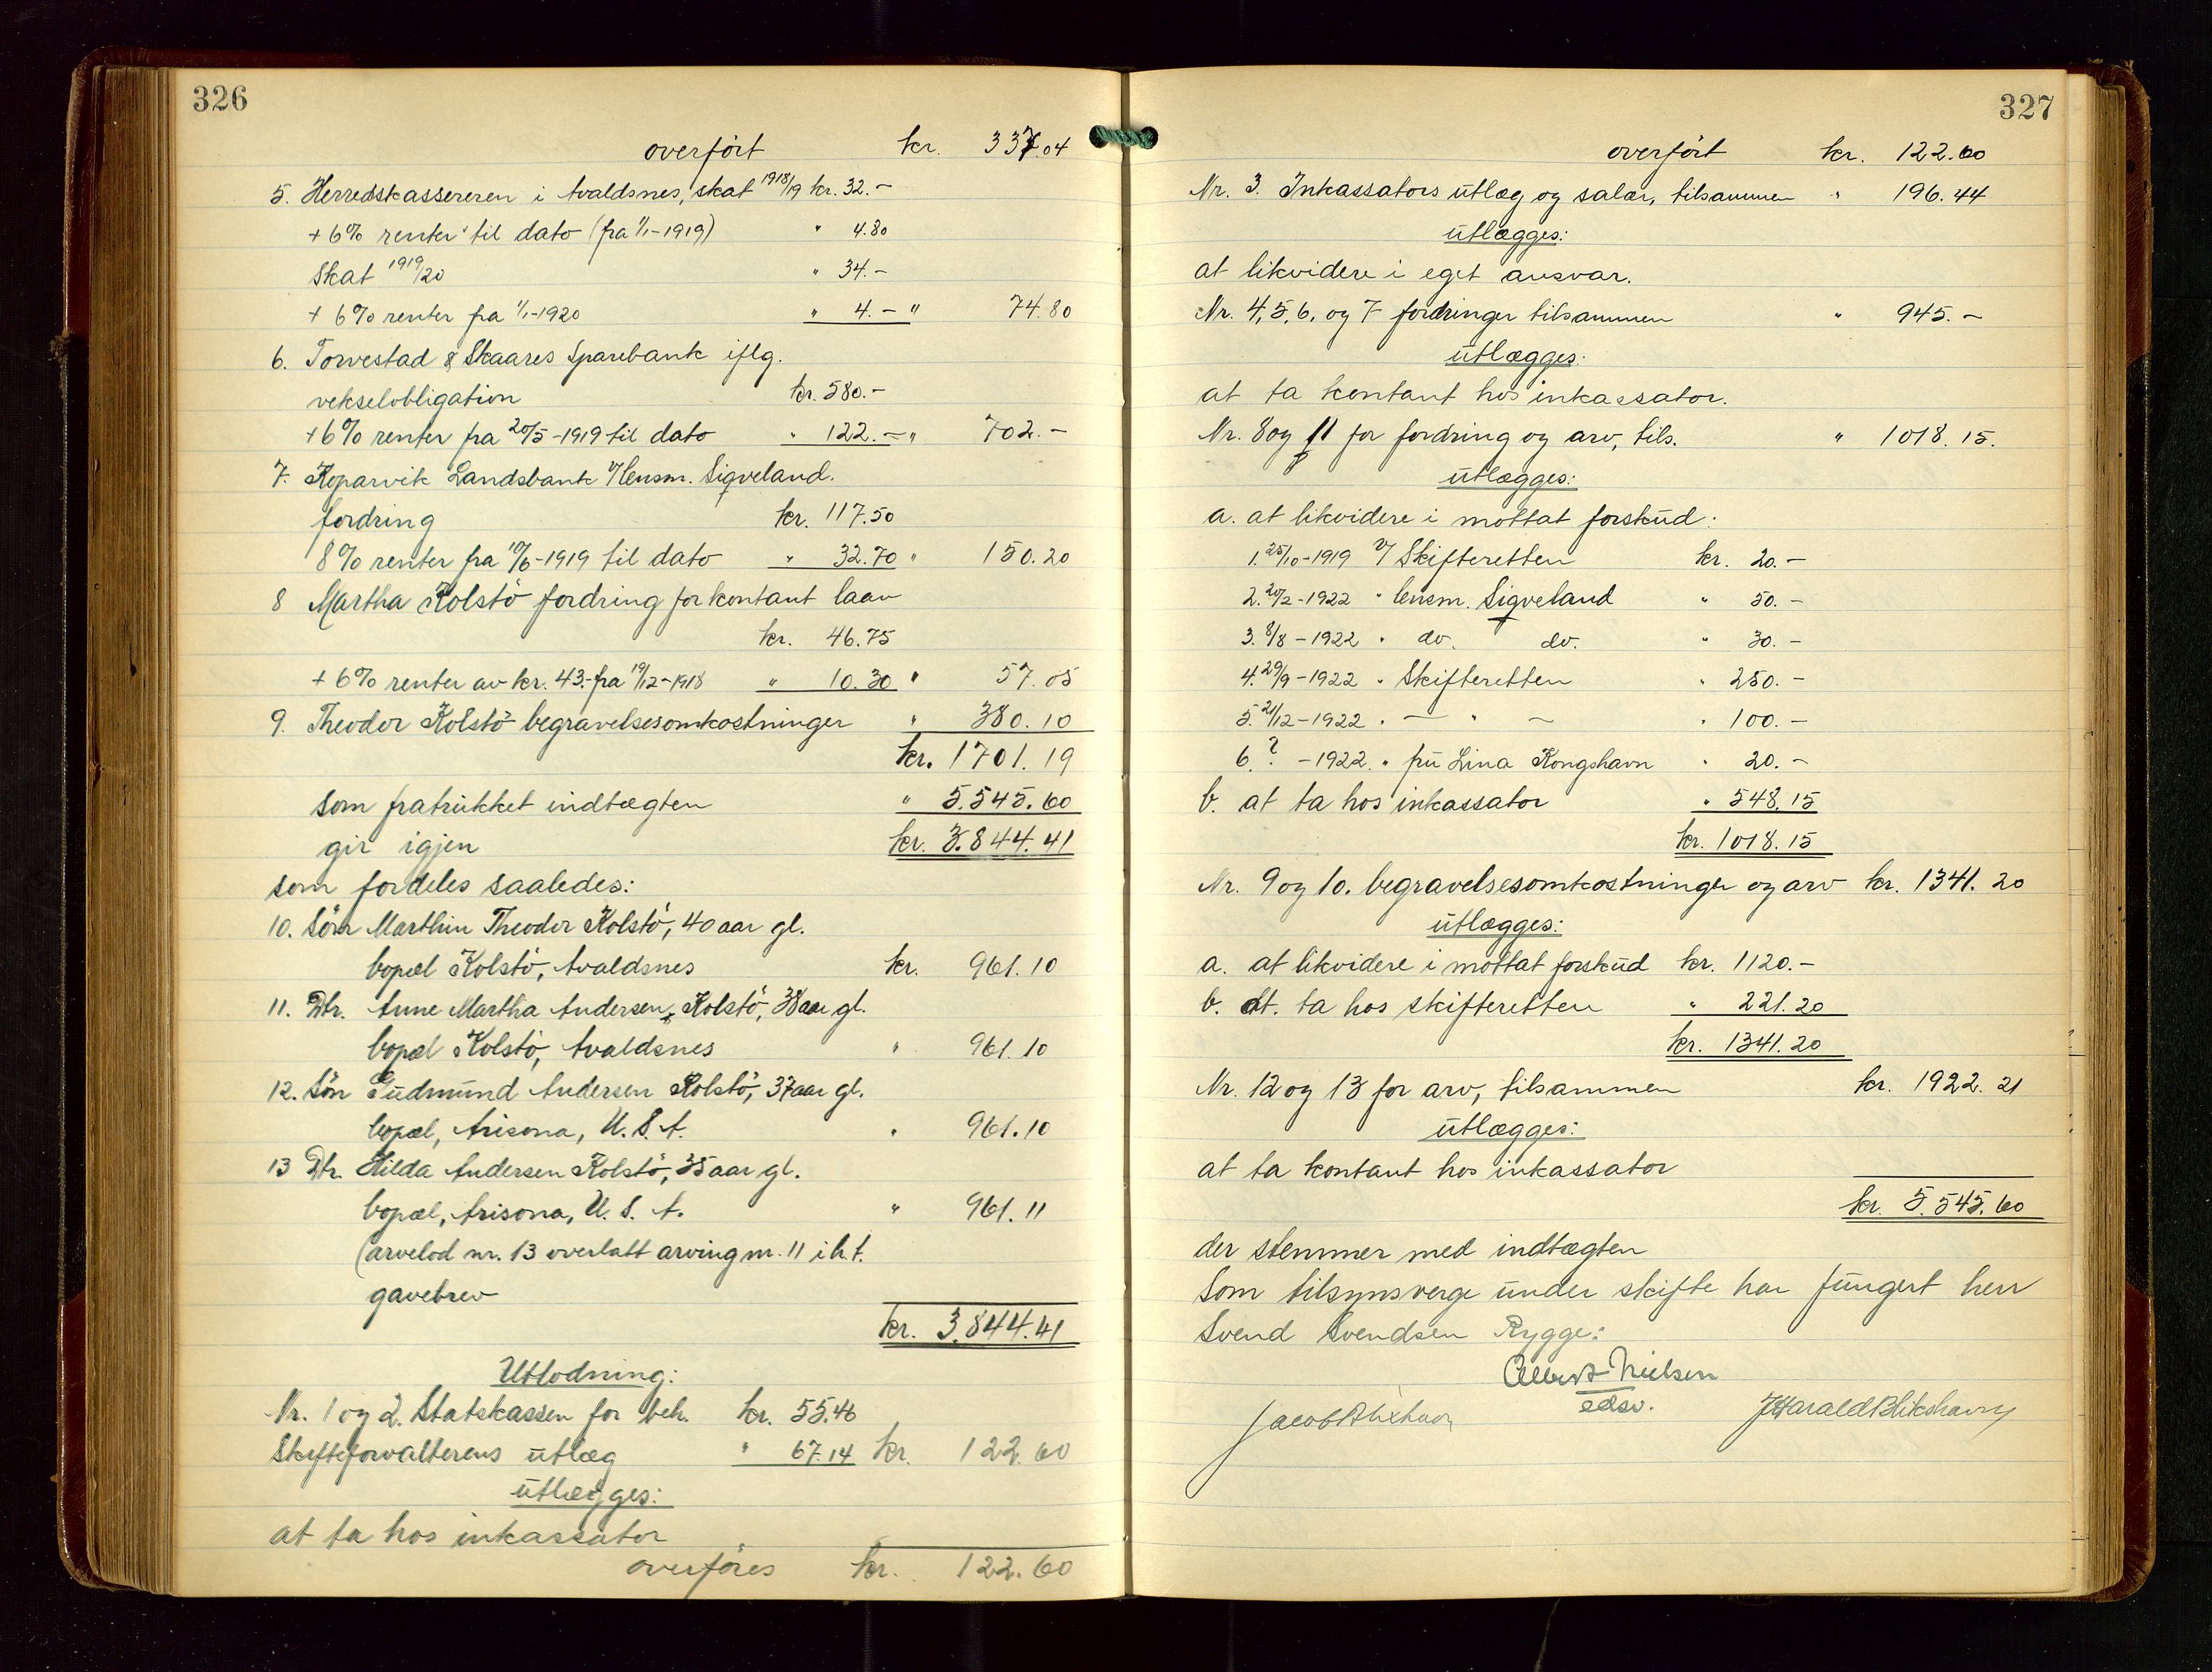 326
overført kr. 337.04
5. Herredskassereren i Avaldsnes, skat 1918/19 kr. 32.-
+ 6% renter til dato (fra 1/1-1919) " 4.80
Skat 1919/20 " 34.-
+ 6% renter fra 1/1-1920 " 4.- " 74.80
6. Torvestad & Skaares Sparebank iflg.
vekselobligation kr. 580.-
+ 6% renter fra 20/5-1919 til dato " 122.- " 702.-
7. Kopervik Landsbank v/ lensm. Sigveland.
fordring kr. 117.50
8% renter fra 10/6-1919 til dato " 32.70 " 150.20
8 Martha Kolstö fordring for kontant laan
kr. 46.75
+ 6% renter av kr. 43.- fra 19/12-1918 " 10.30 " 57.05
9. Theodor Kolstö begravelsesomkostninger " 380.10
kr. 1701.19
som fratrukket indtægten " 5.545.60
gir igjen kr. 3.844.41
som fordeles saaledes:
10. Sön Marthin Theodor Kolstö, 40 aar gl.
bopæl Kolstö, Avaldsnes kr. 961.10
11. Dtr. Anne Martha Andersen Kolstö, 38 aar gl.
bopæl Kolstö, Avaldsnes " 961.10
12. Sön Gudmund Andersen Kolstö, 37 aar gl.
bopæl, Arisona, U.S.A. " 961.10
13 Dtr. Hilda Andersen Kolstö, 35 aar gl.
bopæl, Arisona, U.S.A. " 961.11
(arvelod nr. 13 overlatt arving nr. 11 i h.t.
gavebrev
kr. 3.844.41
Utlodning:
Nr. 1 og 2. Statskassen for beh. kr. 55.46
Skifteforvalterens utlæg " 67.14 kr. 122.60
utlægges:
at ta hos inkassator
overføres kr. 122.60
327
overført kr. 122.60
Nr. 3. Inkassators utlæg og salær, tilsammen " 196.44
utlægges:
at likvidere i eget ansvar.
Nr. 4, 5, 6, og 7 fordringer tilsammen " 945.-
utlægges:
at ta kontant hos inkassator.
Nr. 8 og 11 for fordring og arv, tils. " 1018.15.
utlægges:
a. at likvidere i mottat forskud:
1. 25/10-1919 v/ Skifteretten kr. 20.-
2. 20/2-1922 " lensm. Sigveland " 50.-
3. 8/8-1922 " do. do. " 30.-
4. 29/9-1922 " Skifteretten " 250.-
5. 21/12-1922 " — " — " 100.-
6. ? -1922. " fru Lina Kongshavn " 20.-
b. at ta hos inkassator " 548.15
kr. 1018.15
Nr. 9 og 10. begravelsesomkostninger og arv kr. 1341.20
utlægges:
a. at likvidere i mottat forskud kr. 1120.-
b. at ta hos skifteretten " 221.20
kr. 1341.20
Nr. 12 og 13 for arv, tilsammen kr. 1922.21
utlægges:
at ta kontant hos inkassator
kr. 5.545.60
der stemmer med indtægten
Som tilsynsverge under skifte har fungert herr
Svend Svendsen Rygge:
Albert Nielsen
edsv.
Jacob Blikshavn J Harald Blikshavn